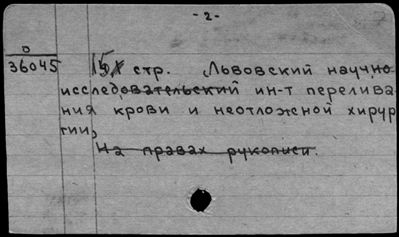 -2-
О
36045
15 стр. Львовский научно-
исследовательский ин-т перелива-
ния крови и неотложной хирур
гии,
На правах рукописи.